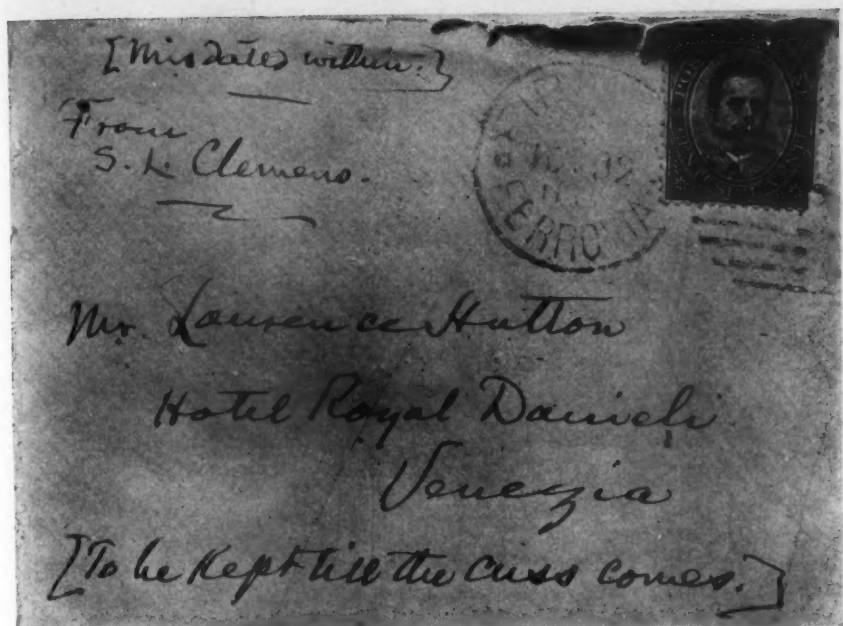 [Misdated within.]
From
S. L. Clemens.
FERROVIA
Mr. Laurence Hutton
Hotel Royal Danieli
Venezia
[To be kept till the cuss comes.]